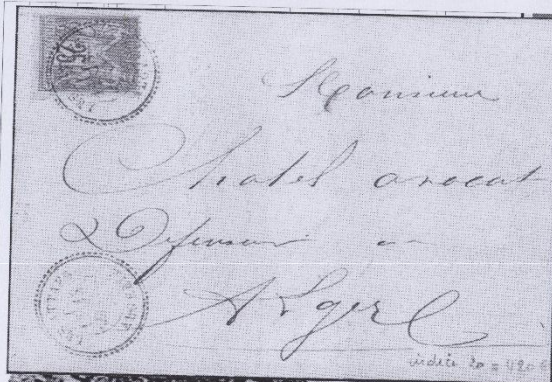 25
Monsieur
Chatel avocat
Défenseur a
Alger
indice 20 = 420 €